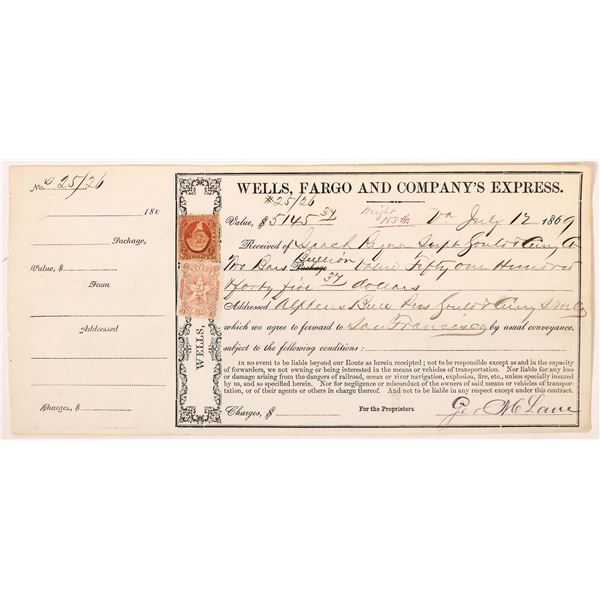 No. # 25/26
180
Package,
Value, $
From
Addressed
Charges, $
WELLS,
WELLS, FARGO AND COMPANY'S EXPRESS.
#25/26
Value, $ 5145 37 Weight 153 lbs Va July 12 1869
Received of Supt Gould & Curry Co
Two Bars Bullion Package Value Fifty one Hundred
& forty five 37 dollars
Addressed Alpheus Bull Pres Gould & Curry S M Co
which we agree to forward to San Francisco by usual conveyance,
subject to the following conditions:
In no event to be liable beyond our Route as herein receipted; not to be responsible except as and in the capacity
of forwarders, we not owning or being interested in the means or vehicles of transportation. Nor liable for any loss
or damage arising from the dangers of railroad, ocean or river navigation, explosion, fire, etc., unless specially insured
by us, and so specified herein. Nor for negligence or misconduct of the owners of said means or vehicles of transporta-
tion, or of their agents or others in charge thereof. And not to be liable in any respect under this contract.
Charges, $ For the Proprietors. Geo M Lane